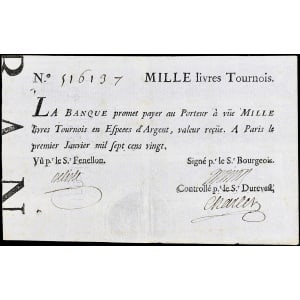 N.º 516137 MILLE livres Tournois.
LA BANQUE promet payer au Porteur à vüe MILLE
livres Tournois en Especes d'Argent, valeur reçüe. A Paris le
premier Janvier mil sept cens vingt.
Vû p.r le S.r Fenellon. Signé p.r le S.r Bourgeois.
Controllé p.r le S.r Durevest.